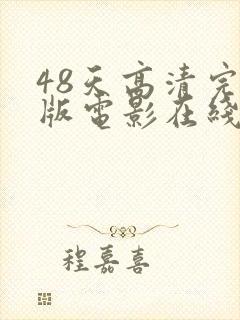 48天高清完
版电影在线
程嘉喜